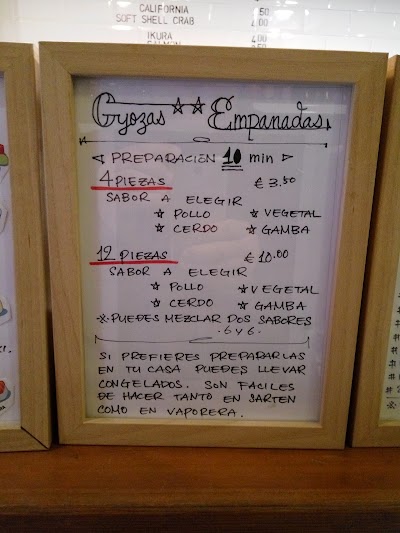 CALIFORNIA
SOFT SHELL CRAB 4.00
IKURA
Gyozas ☆☆ Empanadas
◁ PREPARACIEN 10 min ▷
4 PIEZAS € 3.50
SABOR A ELEGIR
☆ POLLO ☆ VEGETAL
☆ CERDO ☆ GAMBA
12 PIEZAS € 10.00
SABOR A ELEGIR
☆ POLLO ☆ VEGETAL
☆ CERDO ☆ GAMBA
※ PUEDES MEZCLAR DOS SABORES
.6 y 6.
SI PREFIERES PREPARARLAS
EN TU CASA PUEDES LLEVAR
CONGELADOS. SON FACILES
DE HACER TANTO EN SARTEN
COMO EN VAPORERA.